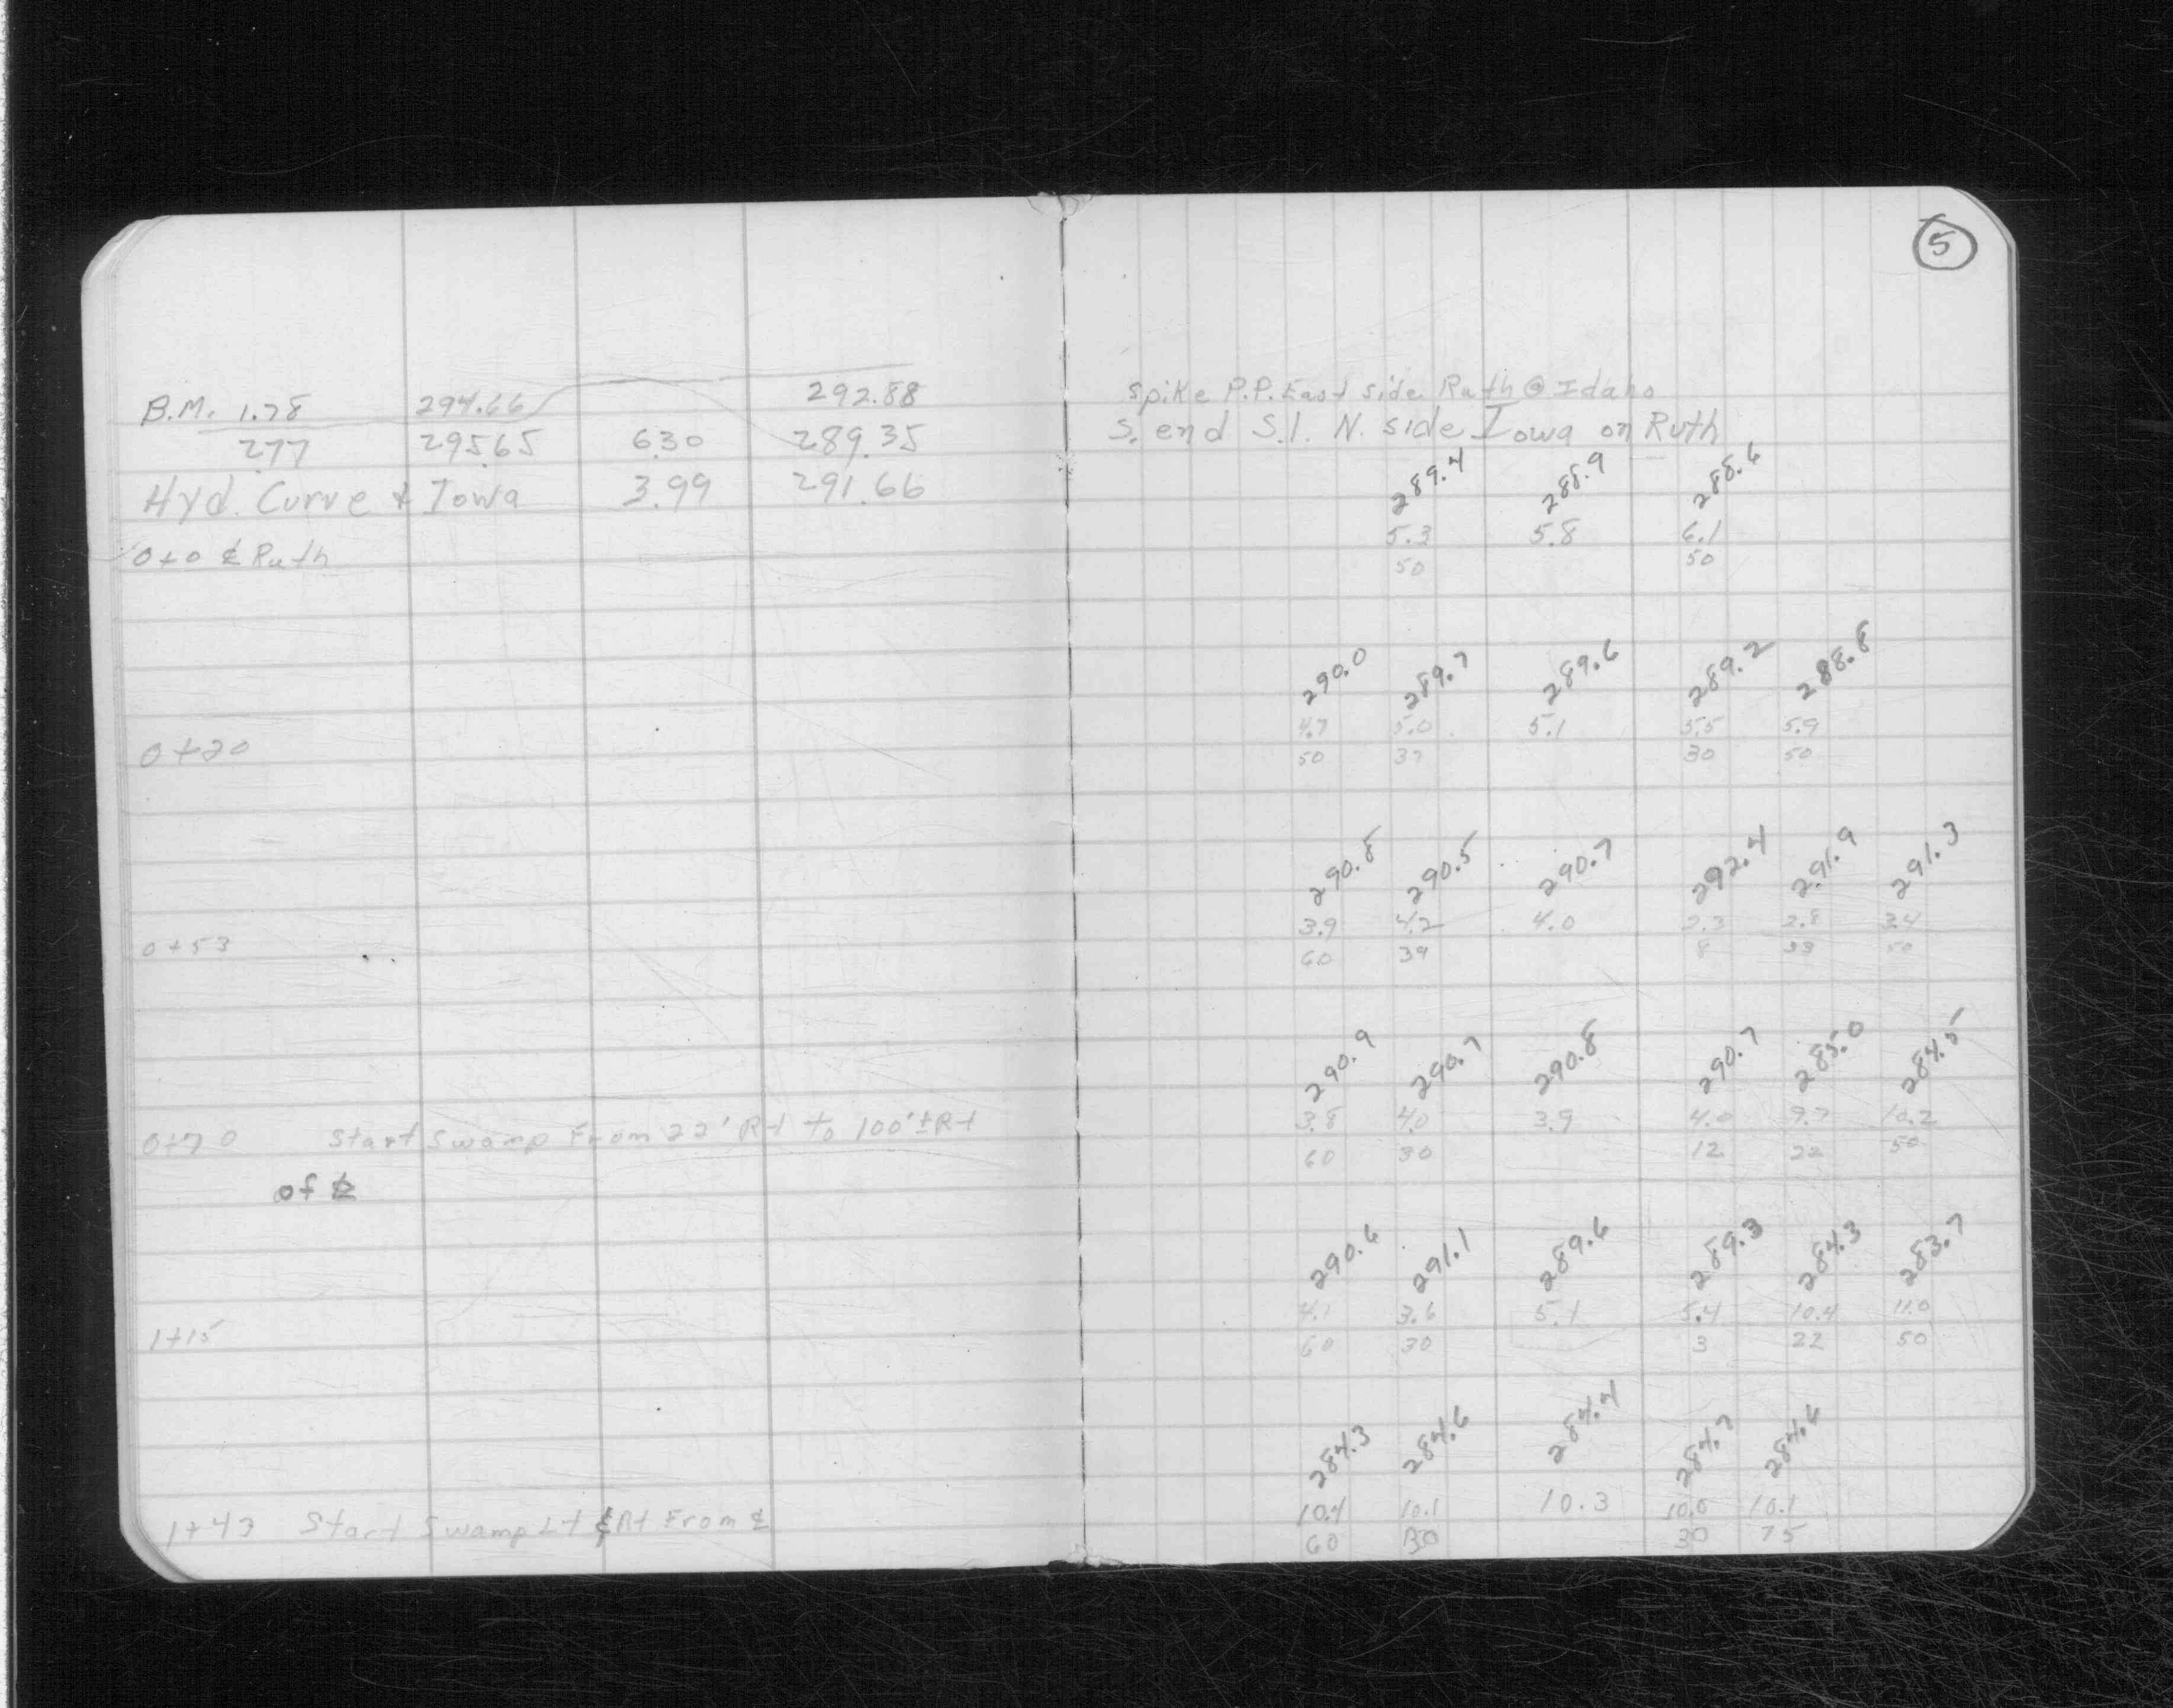 5
B.M. 1.78 294.66 292.88 Spike P.P. East side Ruth @ Idaho
2.77 295.65 6.30 289.35 S. end S.I. N. side Iowa on Ruth
Hyd. Curve & Iowa 3.99 291.66
289.4 288.9 288.6
5.3 5.8 6.1
0+0 ℄ Ruth 50 50
290.0 289.7 289.6 289.2 288.8
4.7 5.0 5.1 5.5 5.9
0+20 50 37 30 50
290.8 290.5 290.7 292.4 291.9 291.3
3.9 4.2 4.0 2.3 2.8 3.4
0+53 60 39 8 33 50
290.9 290.7 290.8 290.7 285.0 284.5
3.8 4.0 3.9 4.0 9.7 10.2
0+70 Start Swamp From 22' Rt to 100'± Rt 60 30 12 22 50
of ℄
290.6 291.1 289.6 289.3 284.3 283.7
4.1 3.6 5.1 5.4 10.4 11.0
1+15 60 30 3 22 50
284.3 284.6 284.4 284.7 284.6
10.4 10.1 10.3 10.0 10.1
1+47 Start Swamp Lt & Rt From ℄ 60 30 30 75